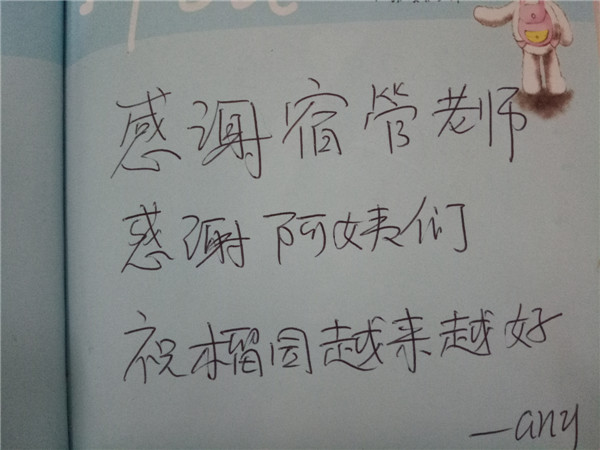 感谢宿管老师
感谢阿姨们
祝榴园越来越好
—any